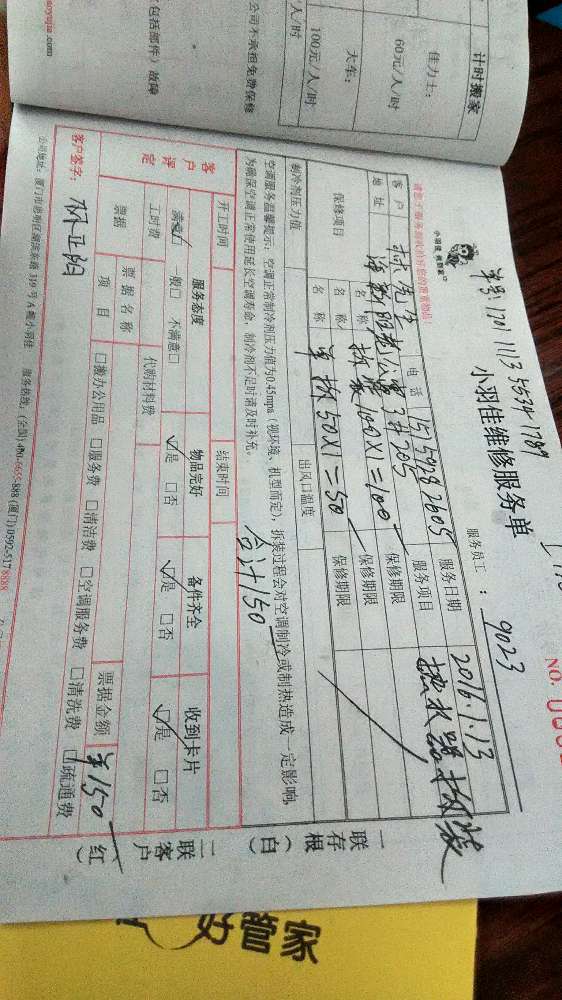 计时搬家
佳力士:
60元/人/时
大车:
100元/人/时
公司不承担免费保修
包括部件)故障
单号:1701 1113 5534 1789
小羽佳维修服务单
服务员工:9023
NO.
请您于服务前收拾好您的贵重物品!
客户
先生
电话
15159282605
服务日期
2016.1.13
地址
705
服务项目
热水器拆装
保修项目
名称
拆装100X1=100
保修期限
名称
单拆50X1=50
保修期限
名称
保修期限
制冷剂压力值
出风口温度
空调服务温馨提示:空调正常制冷剂压力值为0.45mpa(视环境、机型而定),拆装过程会对空调制冷或制热造成一定影响,
为确保空调正常使用延长空调寿命,制冷剂不足时请及时补充。
合计150
开工时间
结束时间
客户评定
服务态度
物品完好
备件齐全
收到卡片
满意☑ 一般□ 不满意□
☑是 □否
☑是 □否
☑是 □否
工时费
代购材料费
票据
票据名称
票据金额
¥150
项目
□搬办公用品 □服务费 □清洁费 □空调服务费 □清洗费 □疏通费
客户签字:
林正阳
公司地址:厦门市思明区湖滨东路319号A栋小羽佳 服务热线:(全国)400-6655-888 (厦门)0592-5178888
一联存根(白)
二联客户(红)
好管家